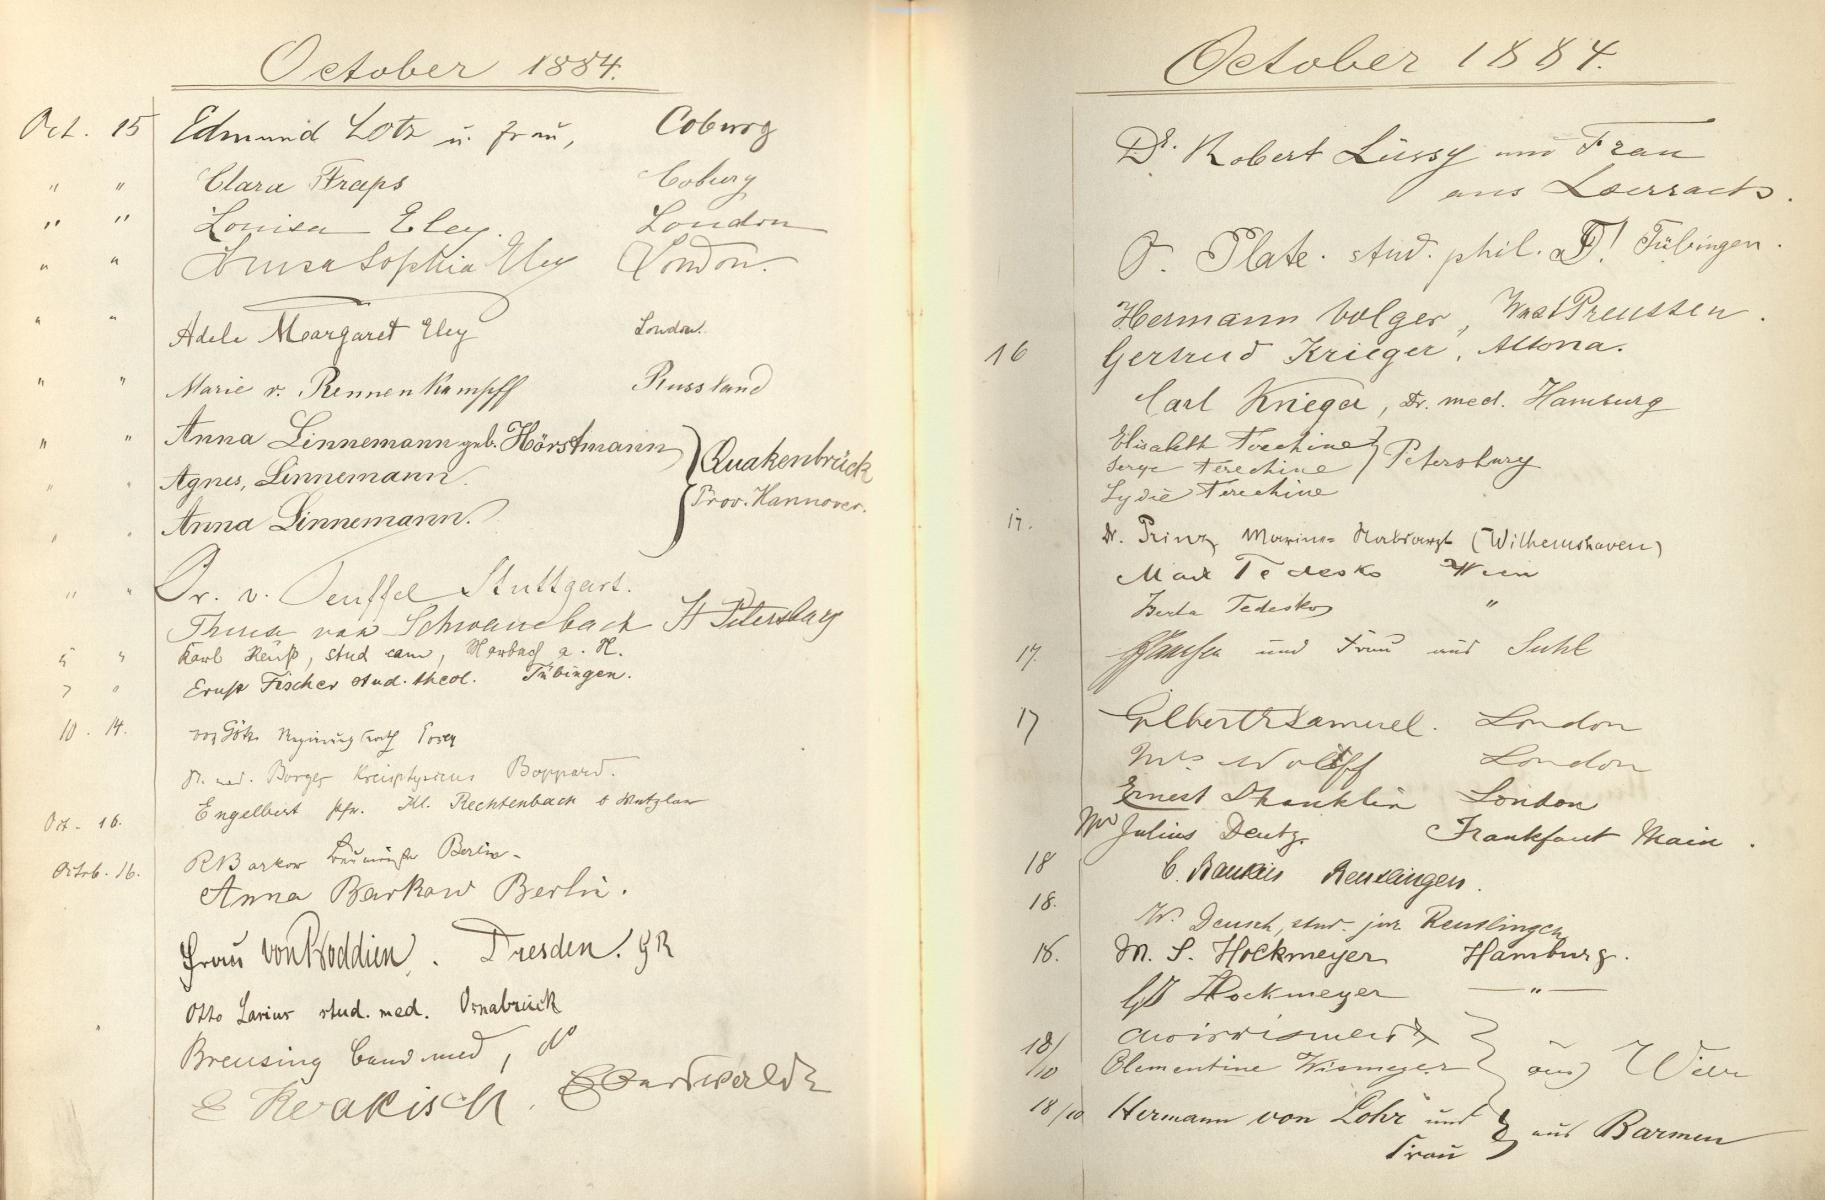 October 1884.
Oct. 15 Edmund Lotz u. Frau, Coburg
" " Clara Fraps Coburg
" " Louisa Eley. London
" " Louisa Sophia Eley London.
" " Adele Margaret Eley London.
" " Marie v. Rennenkampff Russland
" " Anna Linnemann geb. Hörstmann Quakenbrück
" " Agnes, Linnemann. Prov. Hannover.
" " Anna Linnemann.
" " Dr. v. Teuffel Stuttgart.
von Schwanebach St Petersburg
" " Karl stud cam, a. N.
" " Ernst Fischer stud. theol. Tübingen.
10. 14. von
Dr. med. Borger Kreisphysicus Boppard.
Oct. 16. Engelbert Pfr. Kl. Rechtenbach b Wetzlar
Octob. 16. R Barkow Berlin.
Anna Barkow Berlin.
Frau von Boddien. Dresden.
Otto Larius stud. med. Osnabrück
" Breusing cand med, do
October 1884.
Dr. Robert Lüssy und Frau
aus Loerrach.
O. Plate. stud. phil. Tübingen.
Hermann Volger, WestPreussen.
16 Gertrud Krieger, Altona.
Carl Krieger, Dr. med. Hamburg
Elisabeth Terechine Petersburg
Serge Terechine
Lydie Terechine
17. Dr. Prinz Marine- (Wilhelmshaven)
Max Tedesko Wien
Berta Tedesko "
17. und Frau aus Suhl
17 Gilbert E Samuel. London
Mrs Wolff London
Ernest Shanklin London
Mr Julius Deutz Frankfurt Main.
18 C. Reutlingen.
18. W. Deusch, stud. jur. Reutlingen
18. M. S. Hockmeyer Hamburg.
Hockmeyer — " —
18/10
Clementine Wismeyer aus Wien
18/10 Hermann von Lohr und
Frau aus Barmen